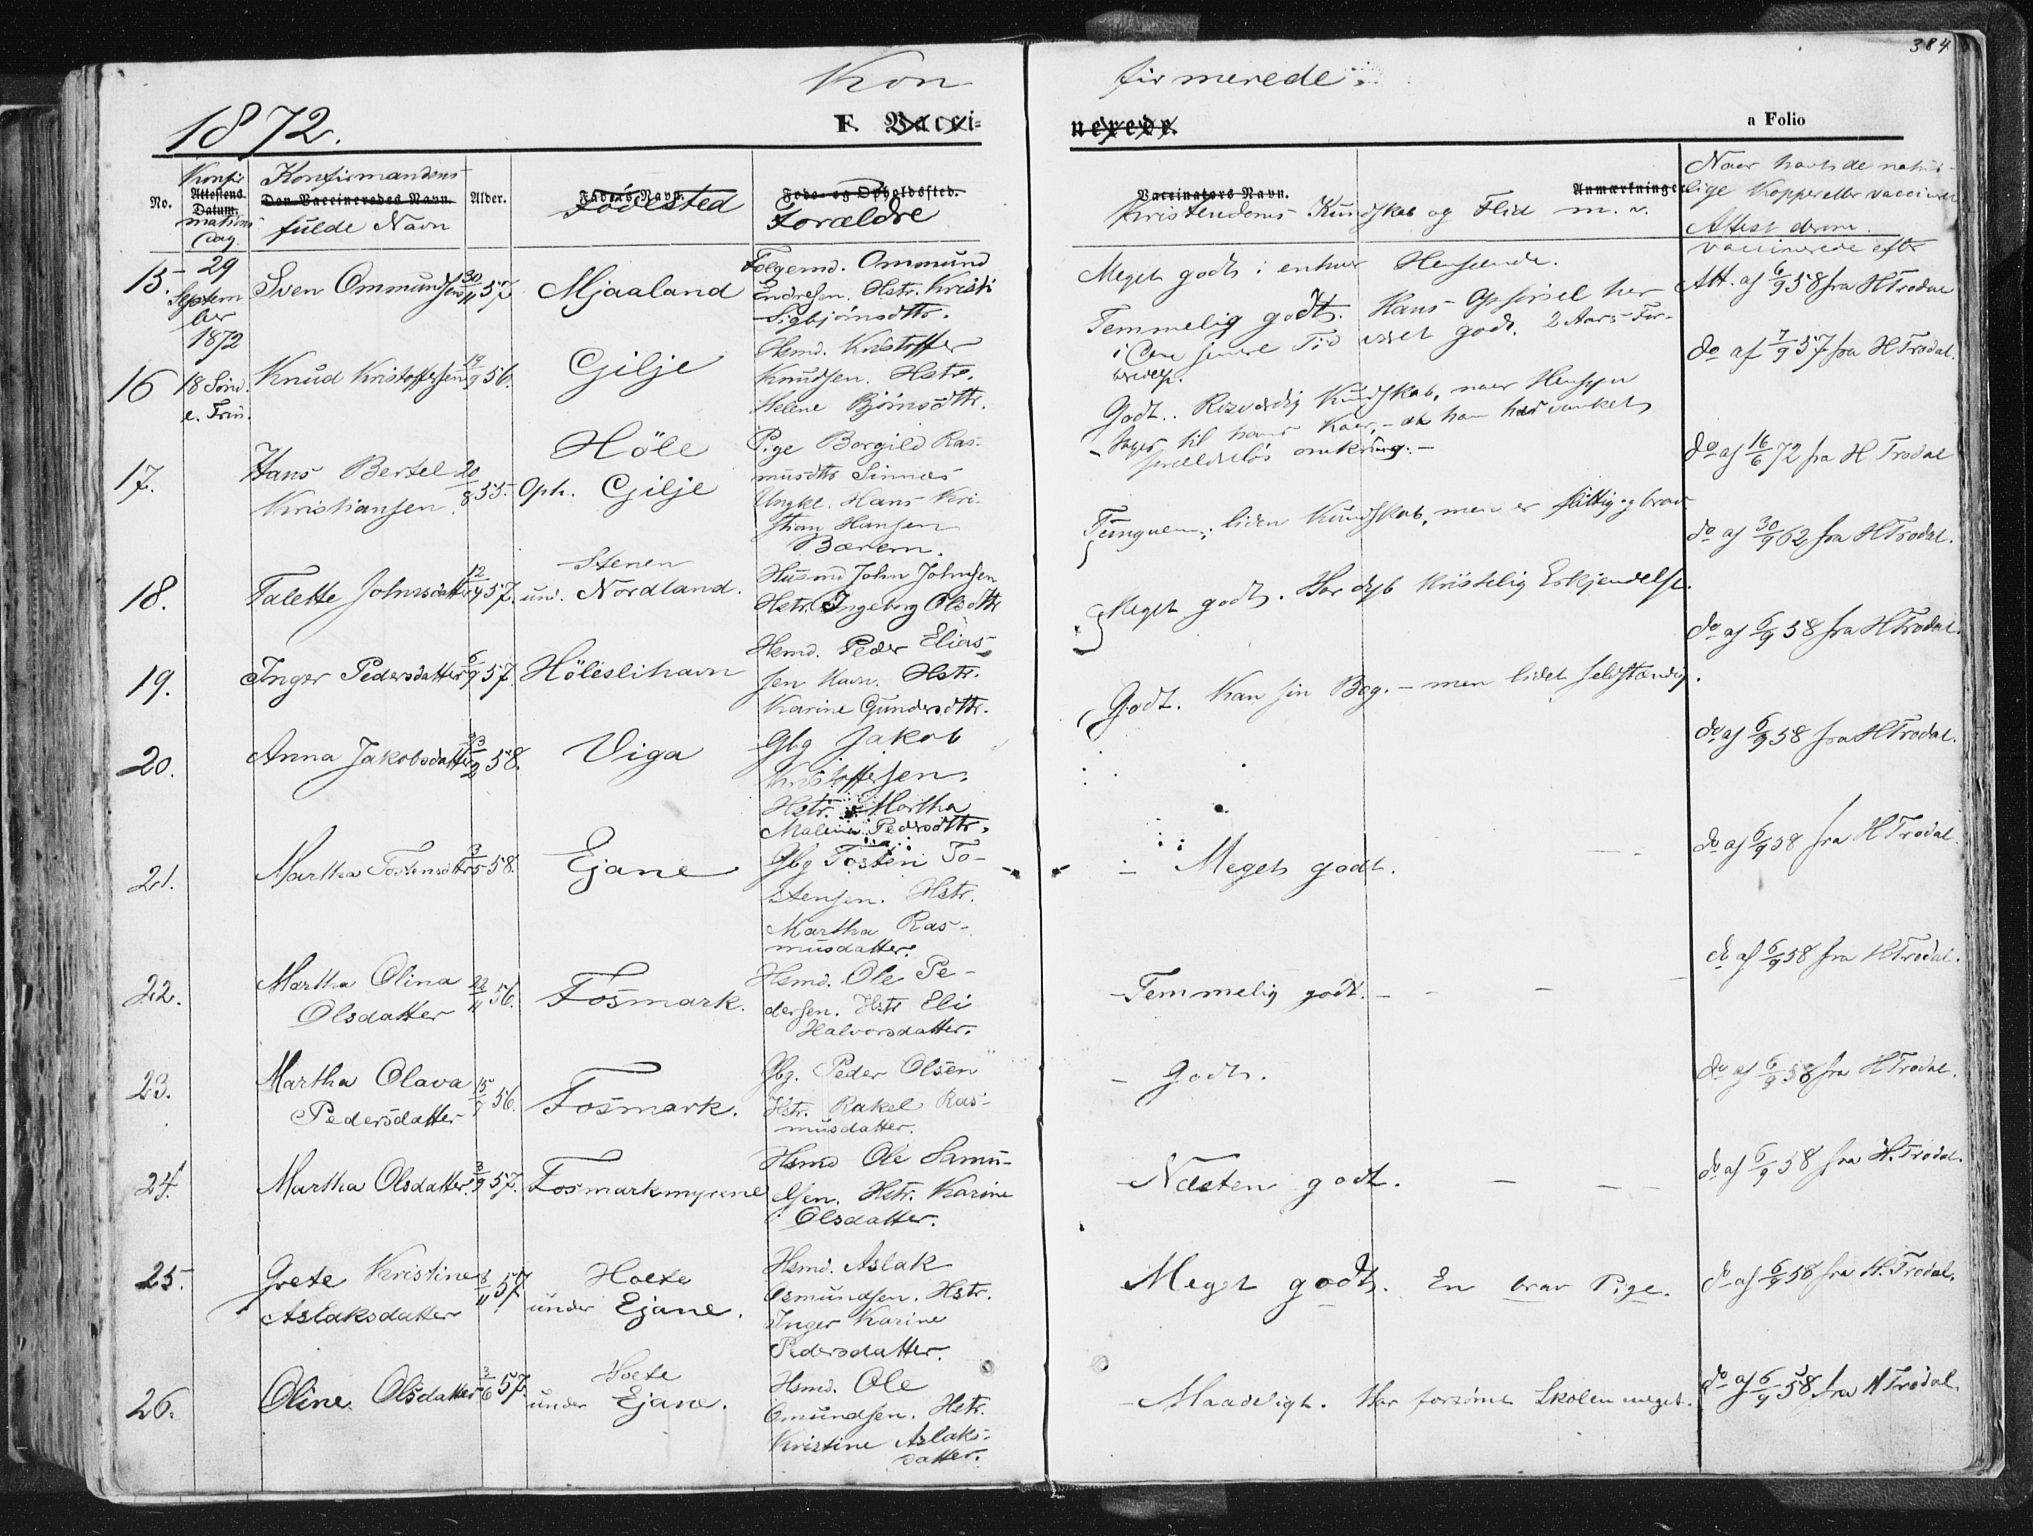 384
Kon firmerede.
1872.
F. Vacci- nerede.
a Folio
No.
Konfir mations Dag.
Attestens Datum.
Konfirmandens fulde Navn
Den Vaccineredes Navn.
Alder.
Faders Navn.
Födested
Føde- og Opholdssted.
Forældre
Vaccinators Navn.
Kristendoms Kundskab og Flid m. v.
Anmærkninger
Naar havt de natur-
lige Kopper eller vaccineret
Attest derom.
vaccinerede efter
15. 29 September 1872 Sven Ommundsen 30/11 57. Mjaaland
Følgemd. Ommund
Endresen. Hstr. Kristi
Sigbjörnsdttr.
Meget godt i enhver Henseende.
Att. af 6/9 58 fra H Trodal
16 18 Sönd. e. Trin. Knud Kristoffersen 19/9 56. Gilje
Hsmd. Kristoffer
Knudsen. Hstr.
Helene Björnsdttr.
Temmelig godt. Hans Opførsel her
i den senere Tid været god. 2 Aars For-
beredelse.
do af 7/9 57 fra H Trodal.
17. Hans Bertel Kristiansen. 20/8 55. Höle
Oph. Gilje
Pige Borgild Ras-
musdttr Sinnæs
Ungkl. Hans Kri-
stian Hansen
Bærem.
Godt. Kundskab, naar Hensyn
tages til hans Kaar, – da han har vanket
forældreløs omkring. –
do af 16/6 72 fra H Trodal
18. Talette Johnsdatter 12/4 57. Stenen
und. Nordland.
Husmd John Johnsen
Hstr. Ingeborg Olsdttr
Tungnem; liden Kundskab, men er flittig og brav
do af 30/9 62 fra H Trodal.
19. Inger Pedersdatter 6/9 57. Höleslihavn
Hsmd. Peder Elias-
sen Havn. Hstr.
Karine Gundersdttr.
Meget godt. Har dyb kristelig Erkjendelse.
do af 6/9 58 fra H Trodal.
20. Anna Jakobsdatter 23/2 58. Viga
Gbg Jakob
Kristoffersen.
Hstr. Martha
Malena Pedersdttr.
Godt. Kan sin Bog. – men lidet selvstændig.
do af 6/9 58 fra H Trodal.
21. Martha Tostensdttr 3/5 58. Ejane
Gbg Tosten To-
stensen. Hstr.
Martha Ras-
musdatter.
– Meget godt.
do af 6/9 58 fra H Trodal.
22. Martha Olina Olsdatter 22/11 56. Fosmark.
Hsmd. Ole Pe-
dersen. Hstr Eli
Halvorsdatter.
– Temmelig godt. –
do af 6/9 58 fra H Trodal.
23. Martha Olava Pedersdatter 15/9 56. Fosmark.
Gbg. Peder Olsen
Hstr. Rakel Ras-
musdatter.
– Godt.
do af 6/9 58 fra H Trodal.
24. Martha Olsdatter. 3/9 57. Fosmarkmyrene
Hsmd Ole Samu-
elsen. Hstr. Karine
Olsdatter.
– Næsten godt. –
do af 6/9 58 fra H. Trodal.
25. Grete Kristine Aslaksdatter 8/11 57. Hoete
under Ejane.
Hsmd. Aslak
Osmundsen. Hstr.
Inger Karine
Pedersdatter.
Meget godt. En brav Pige.
do af 6/9 58 fra H. Trodal.
26. Oline Olsdatter 3/6 57. Hoete
under Ejane.
Hsmd. Ole
Omundsen. Hstr.
Kristine Aslaks-
datter.
– Maadeligt. Har forsömt Skolen meget.
do af 6/9 58 fra H Trodal.